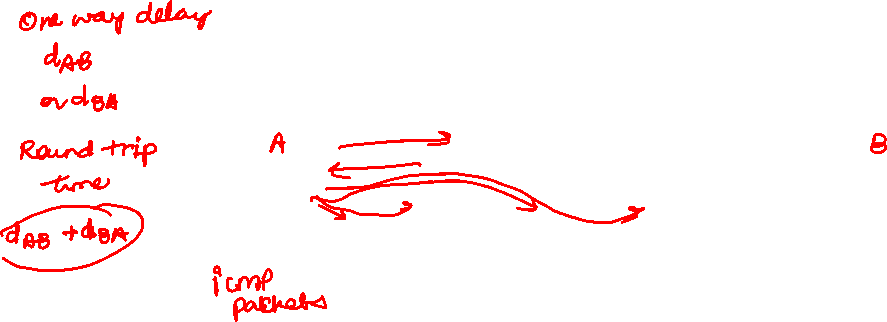 One way delay
dAB
or dBA
Round trip
time
dAB + dBA
A
B
icmp
packets